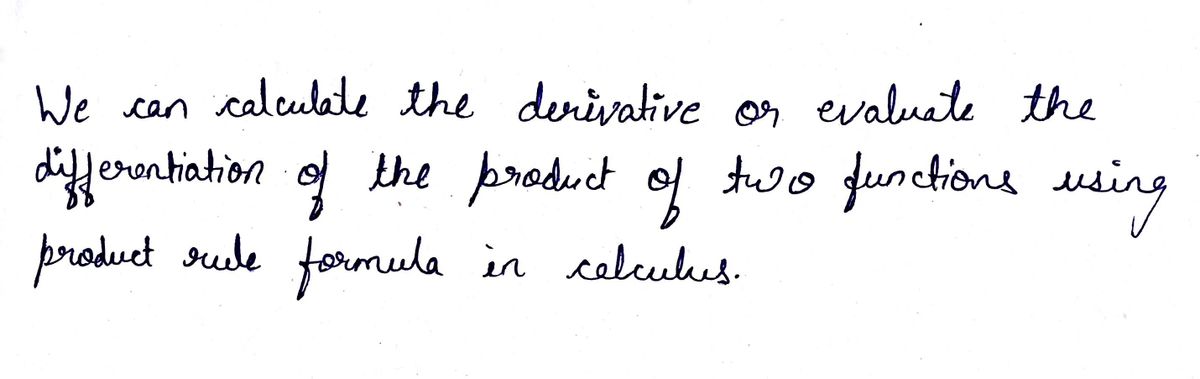 We can calculate the derivative or evaluate the
differentiation of the product of two functions using
product rule formula in calculus.